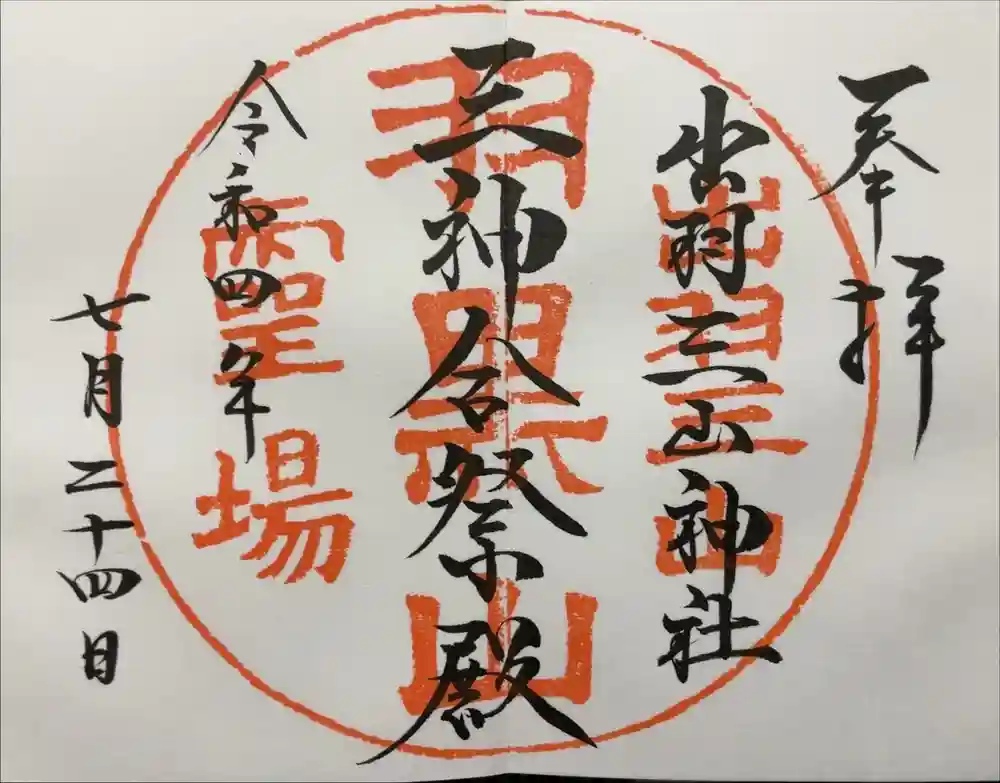 奉拝
出羽三山神社
出羽三山
三神合祭殿
羽黒山
令和四年
霊場
七月二十四日